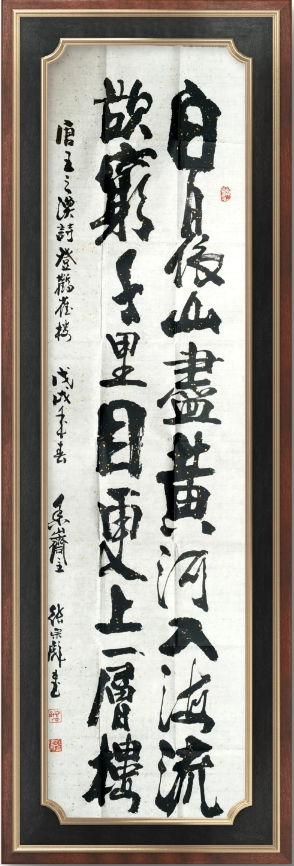 白日依山盡黄河入海流
欲窮千里目更上一層樓
唐王之渙詩登鸛雀樓 戊戌年春 張宗彪書